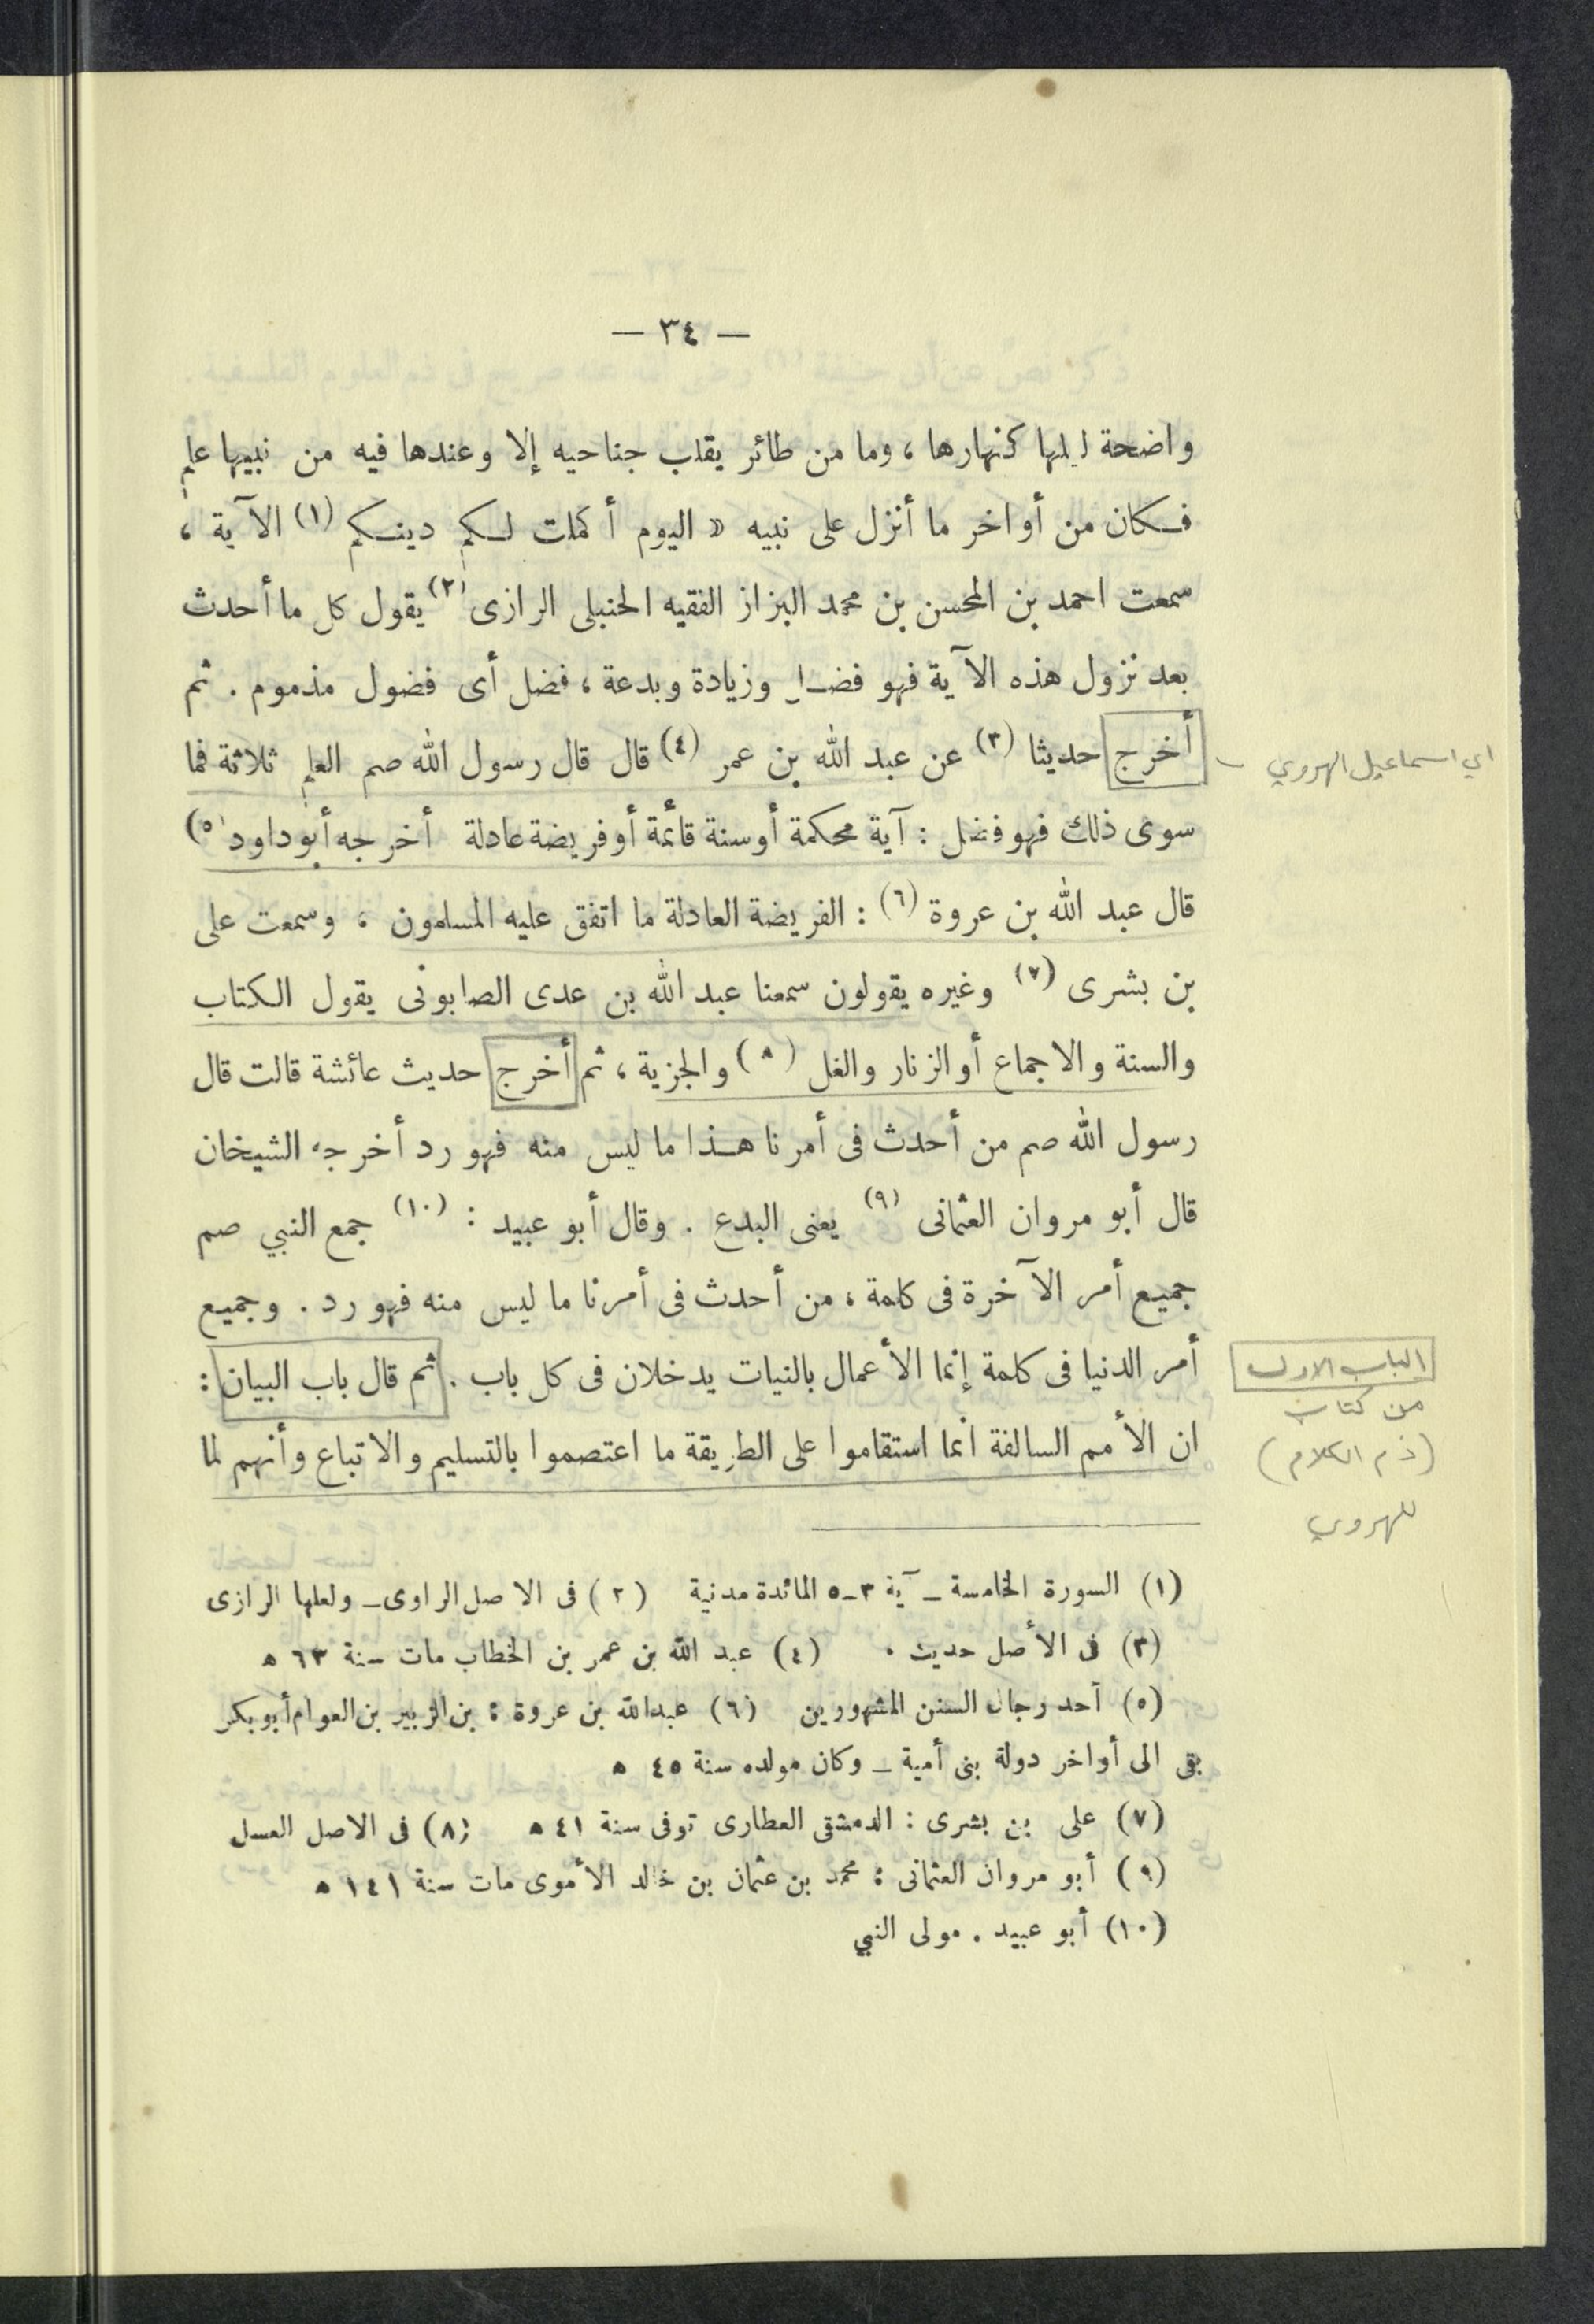 — ٣٤ —
واضحة ليلها كنهارها ، وما من طائر يقلب جناحيه إلا وعندها فيه من نبيها علم
فكان من أواخر ما أنزل على نبيه « اليوم أكملت لكم دينكم (١) الآية ،
سمعت احمد بن المحسن بن محمد البزاز الفقيه الحنبلى الرازى (٢) يقول كل ما أحدث
بعد نزول هذه الآية فهو فضل وزيادة وبدعة ، فضل أى فضول مذموم . ثم
أخرج حديثا (٣) عن عبد الله بن عمر (٤) قال قال رسول الله صم العلم ثلاثة فما
اي اسماعيل الهروي
سوى ذلك فهو فضل : آية محكمة أو سنة قائمة أو فريضة عادلة أخرجه أبو داود (٥)
قال عبد الله بن عروة (٦) : الفريضة العادلة ما اتفق عليه المسلمون ، وسمعت على
بن بشرى (٧) وغيره يقولون سمعنا عبد الله بن عدى الصابونى يقول الكتاب
والسنة والاجماع أو الزنار والغل (٨) والجزية ، ثم أخرج حديث عائشة قالت قال
رسول الله صم من أحدث فى أمرنا هذا ما ليس منه فهو رد أخرجه الشيخان
قال أبو مروان العثمانى (٩) يعنى البدع . وقال أبو عبيد : (١٠) جمع النبي صم
جميع أمر الآخرة فى كلمة ، من أحدث فى أمرنا ما ليس منه فهو رد . وجميع
أمر الدنيا فى كلمة إنما الأعمال بالنيات يدخلان فى كل باب . ثم قال باب البيان :
ان الأمم السالفة انما استقاموا على الطريقة ما اعتصموا بالتسليم والاتباع وأنهم لما
الباب الاول
من كتاب
(ذم الكلام)
للهروي
(١) السورة الخامسة ــ آية ٣ــ٥ المائدة مدنية (٢) فى الاصل الراوى ــ ولعلها الرازى
(٣) فى الأصل حديث . (٤) عبد الله بن عمر بن الخطاب مات سنة ٦٣ ه
(٥) أحد رجال السنن المشهورين (٦) عبدالله بن عروة : بن الزبير بن العوام أبو بكر
بقى الى أواخر دولة بنى أمية ــ وكان مولده سنة ٤٥ ه
(٧) على بن بشرى : الدمشقى العطارى توفى سنة ٤١ ه (٨) فى الاصل العسل
(٩) أبو مروان العثمانى : محمد بن عثمان بن خالد الأموى مات سنة ١٤١ ه
(١٠) أبو عبيد . مولى النبي